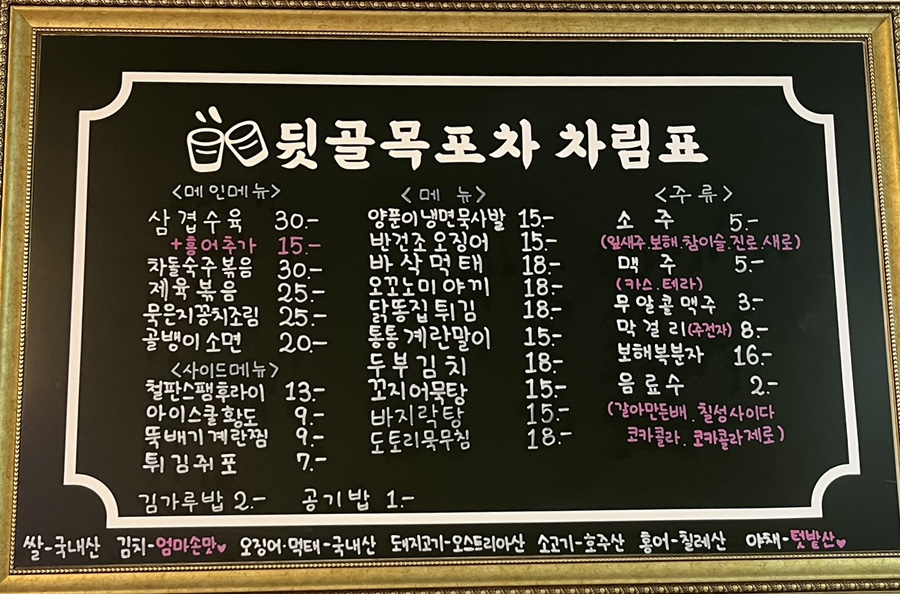 뒷골목포차 차림표
<메인메뉴>
삼겹수육 30.-
+홍어추가 15.-
차돌숙주볶음 30.-
제육볶음 25.-
묵은지꽁치조림 25.-
골뱅이소면 20.-
<사이드메뉴>
철판스팸후라이 13.-
아이스쿨황도 9.-
뚝배기계란찜 9.-
튀김쥐포 7.-
김가루밥 2.- 공기밥 1.-
<메 뉴>
양푼이냉면묵사발 15.-
반건조오징어 15.-
바삭먹태 18.-
오꼬노미야끼 18.-
닭똥집튀김 18.-
통통계란말이 15.-
두부김치 18.-
꼬지어묵탕 15.-
바지락탕 15.-
도토리묵무침 18.-
<주류>
소 주 5.-
(잎새주.보해.참이슬.진로.새로)
맥 주 5.-
(카스.테라)
무알콜맥주 3.-
막걸리(주전자) 8.-
보해복분자 16.-
음료수 2.-
(갈아만든배.칠성사이다
코카콜라.코카콜라제로)
쌀-국내산 김치-엄마손맛♥ 오징어·먹태-국내산 돼지고기-오스트리아산 소고기-호주산 홍어-칠레산 야채-텃밭산♥